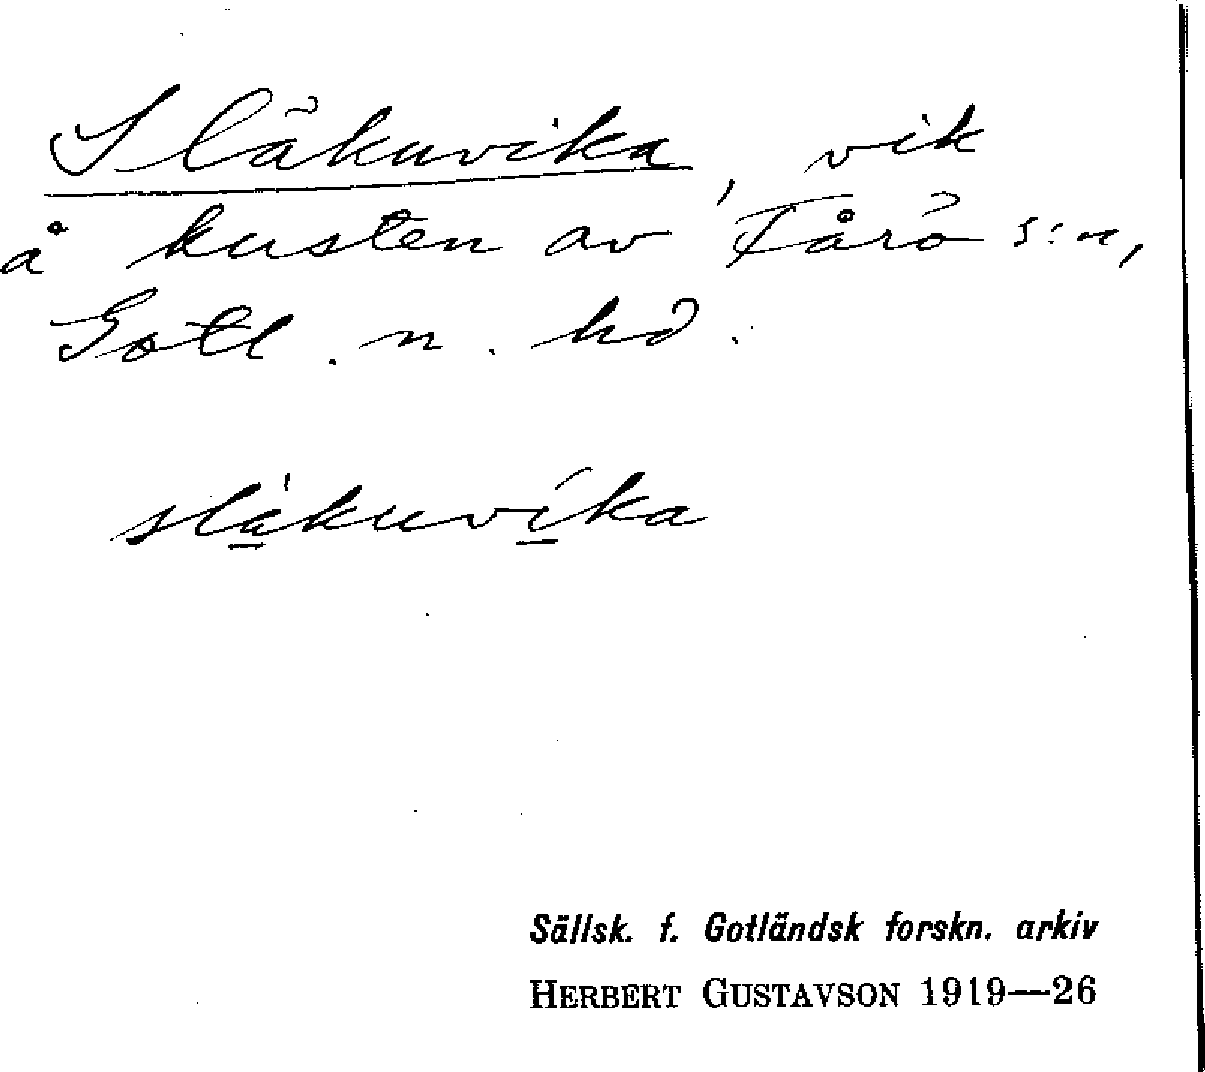 Släkuvika, vik
å kusten av Fårö s:n,
Gotl. n. hd.
släkuvika
Sällsk. f. Gotländsk forskn. arkiv
HERBERT GUSTAVSON 1919—26